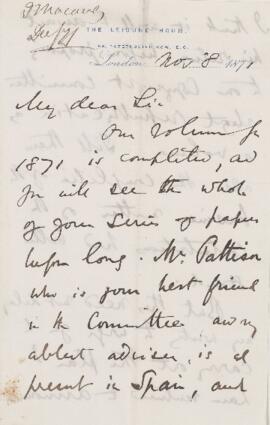 THE LEISURE HOUR.
56, PATERNOSTER ROW, E.C.
London Nov. 8 1871
My dear Sir
Our volume for
1871 is completed, and
you will see the whole
of your series of papers
before long. Mr. Pattison
who is your best friend
in the Committee and my
ablest adviser, is at
present in Spain, and